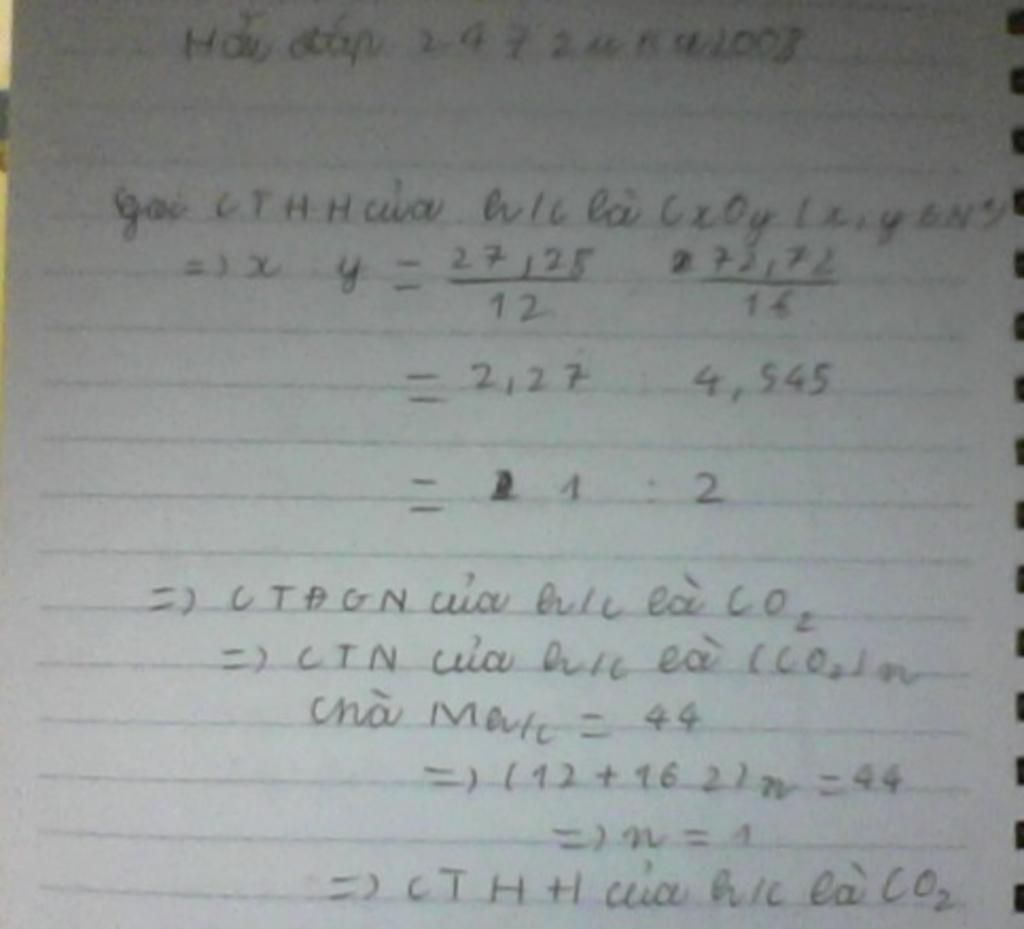 gọi CTHH của h/c là CxOy (x, y ∈ N*)
=> x y = 27,28/12 : 72,72/16
= 2,27 : 4,545
= 1 : 2
=> CTĐGN của h/c là CO₂
=> CTN của h/c là (CO₂)n
mà M h/c = 44
=> (12 + 16 2) n = 44
=> n = 1
=> CTHH của h/c là CO₂